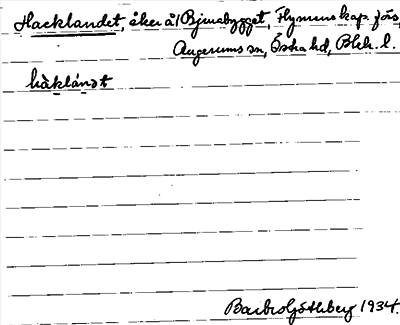 Hacklandet, åker å Bjurabygget, Flymens kap. förs,
Augerums sn, Östra hd, Blek. l.
hàklánət
Barbro Götlberg 1934.